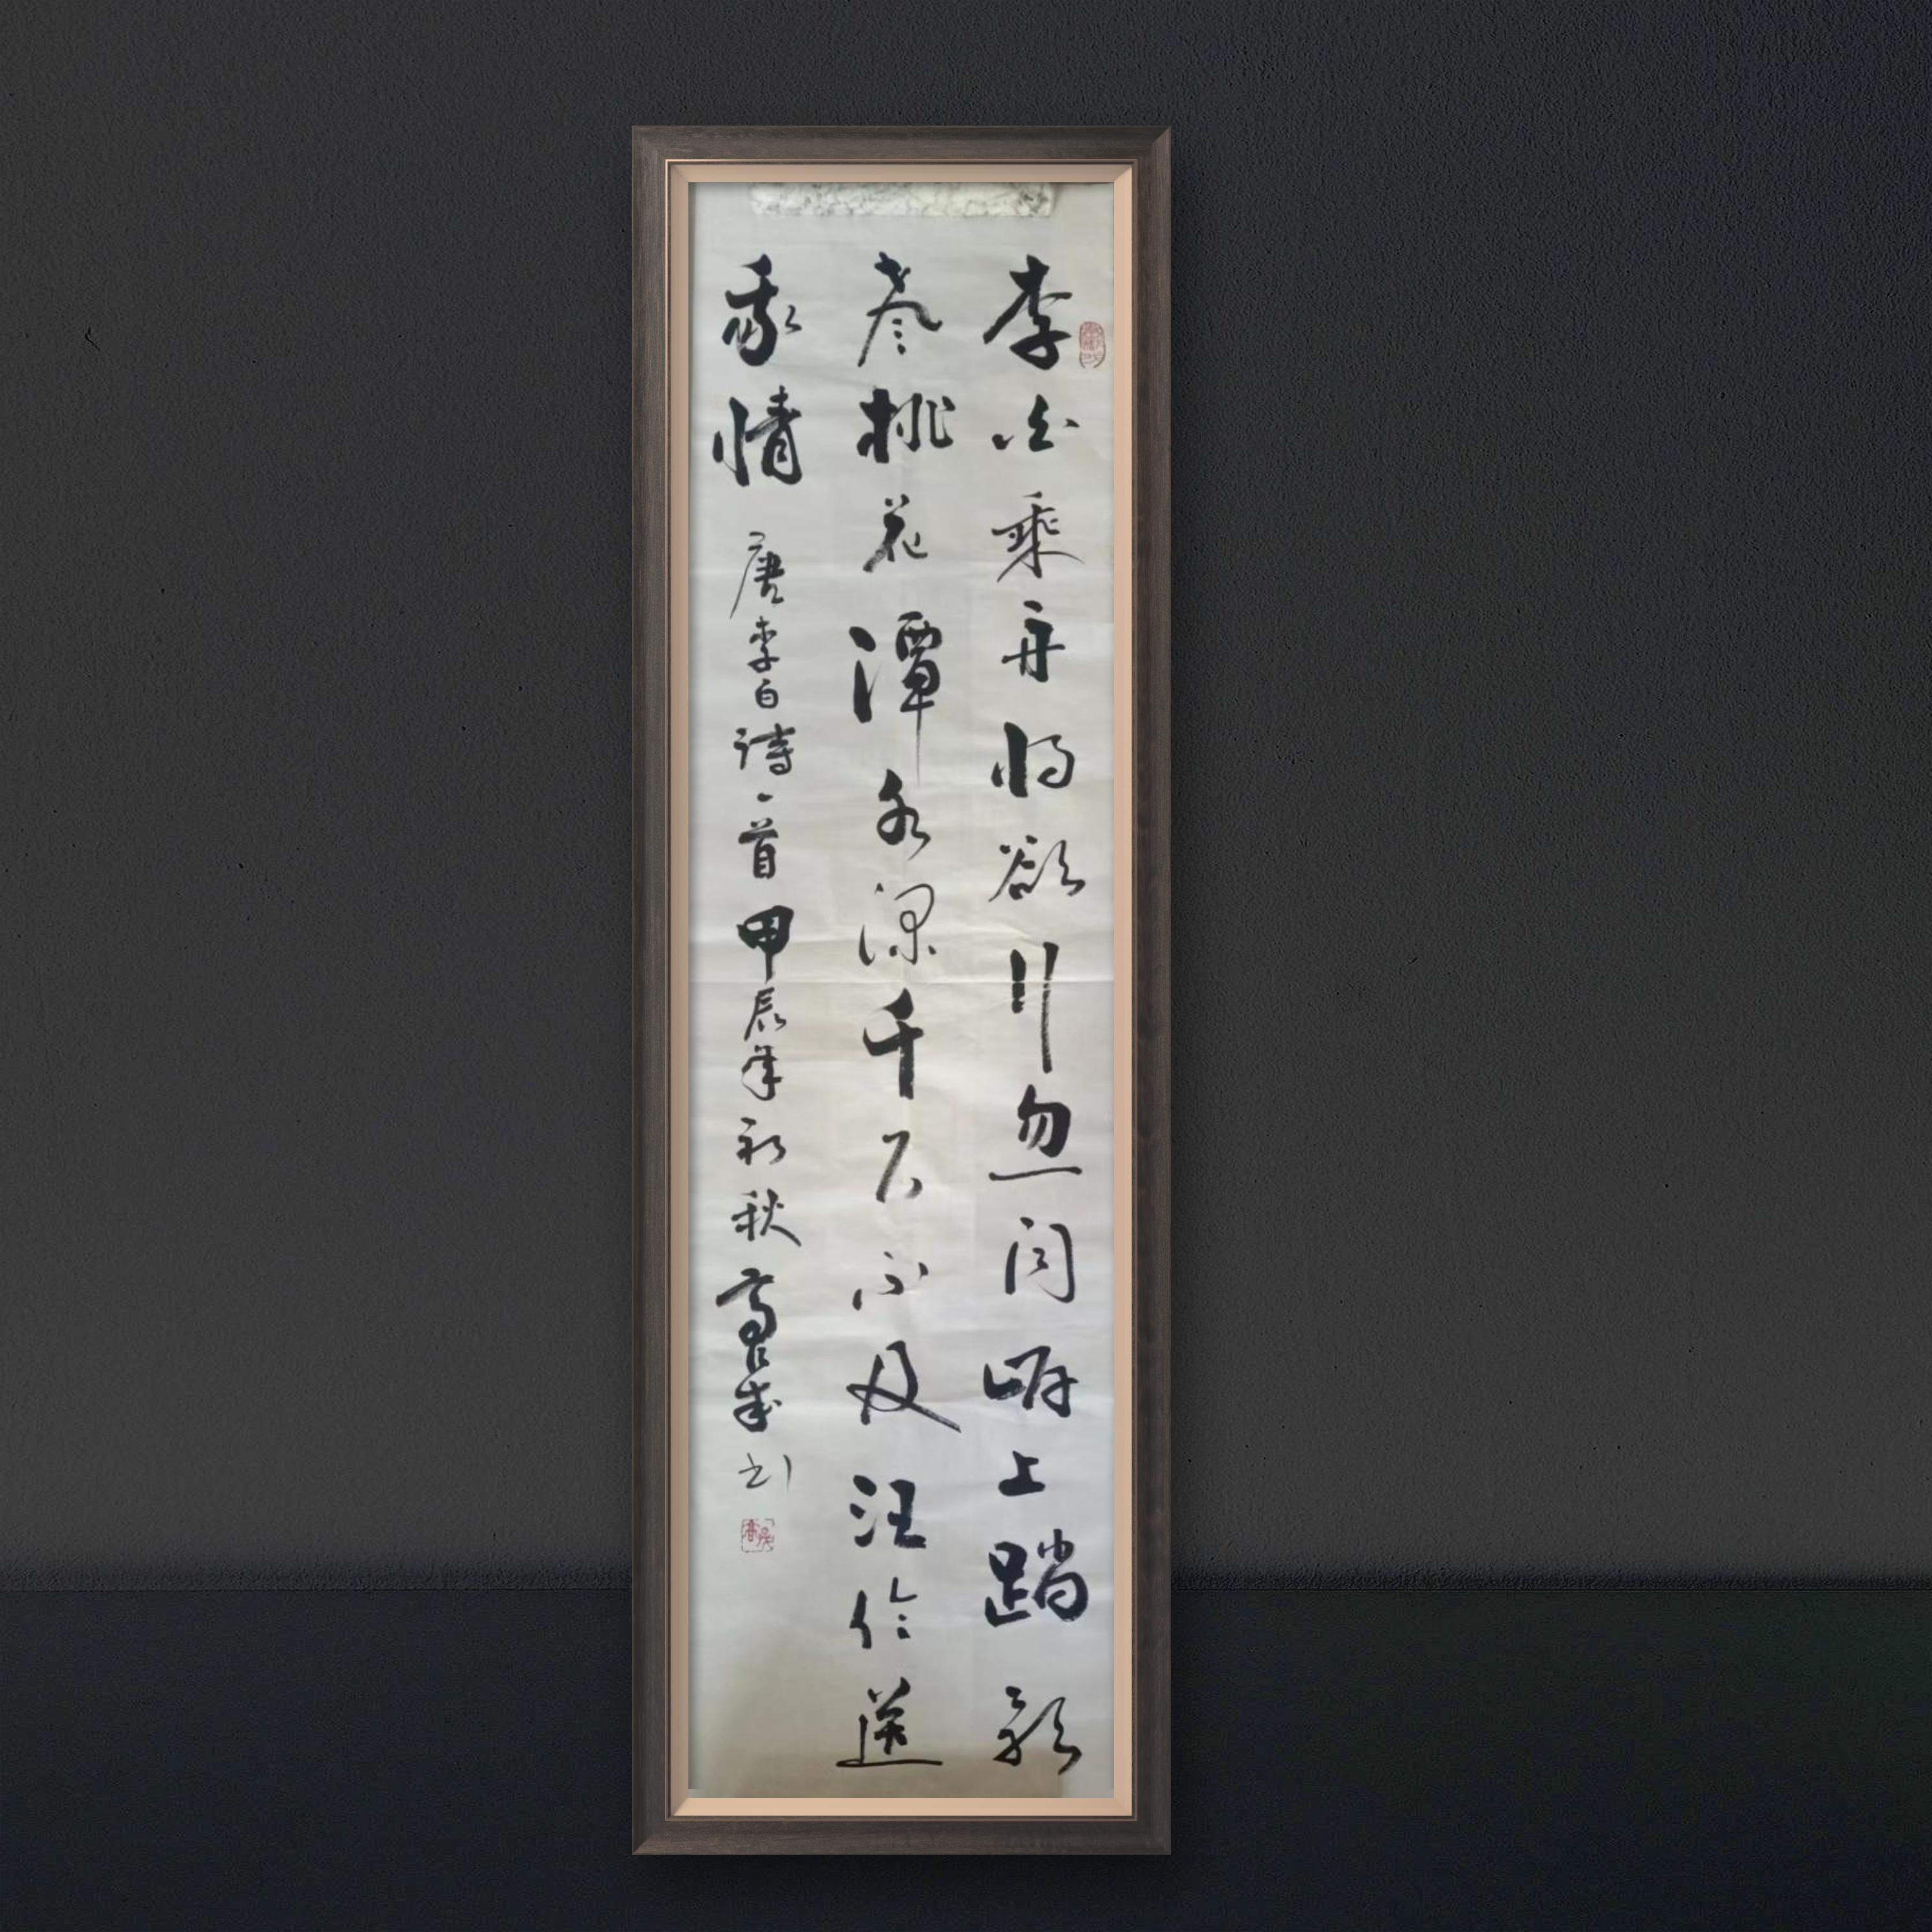 李白乘舟将欲行忽闻岸上踏歌
声桃花潭水深千尺不及汪伦送
我情 唐李白诗一首 甲辰年初秋 高成书